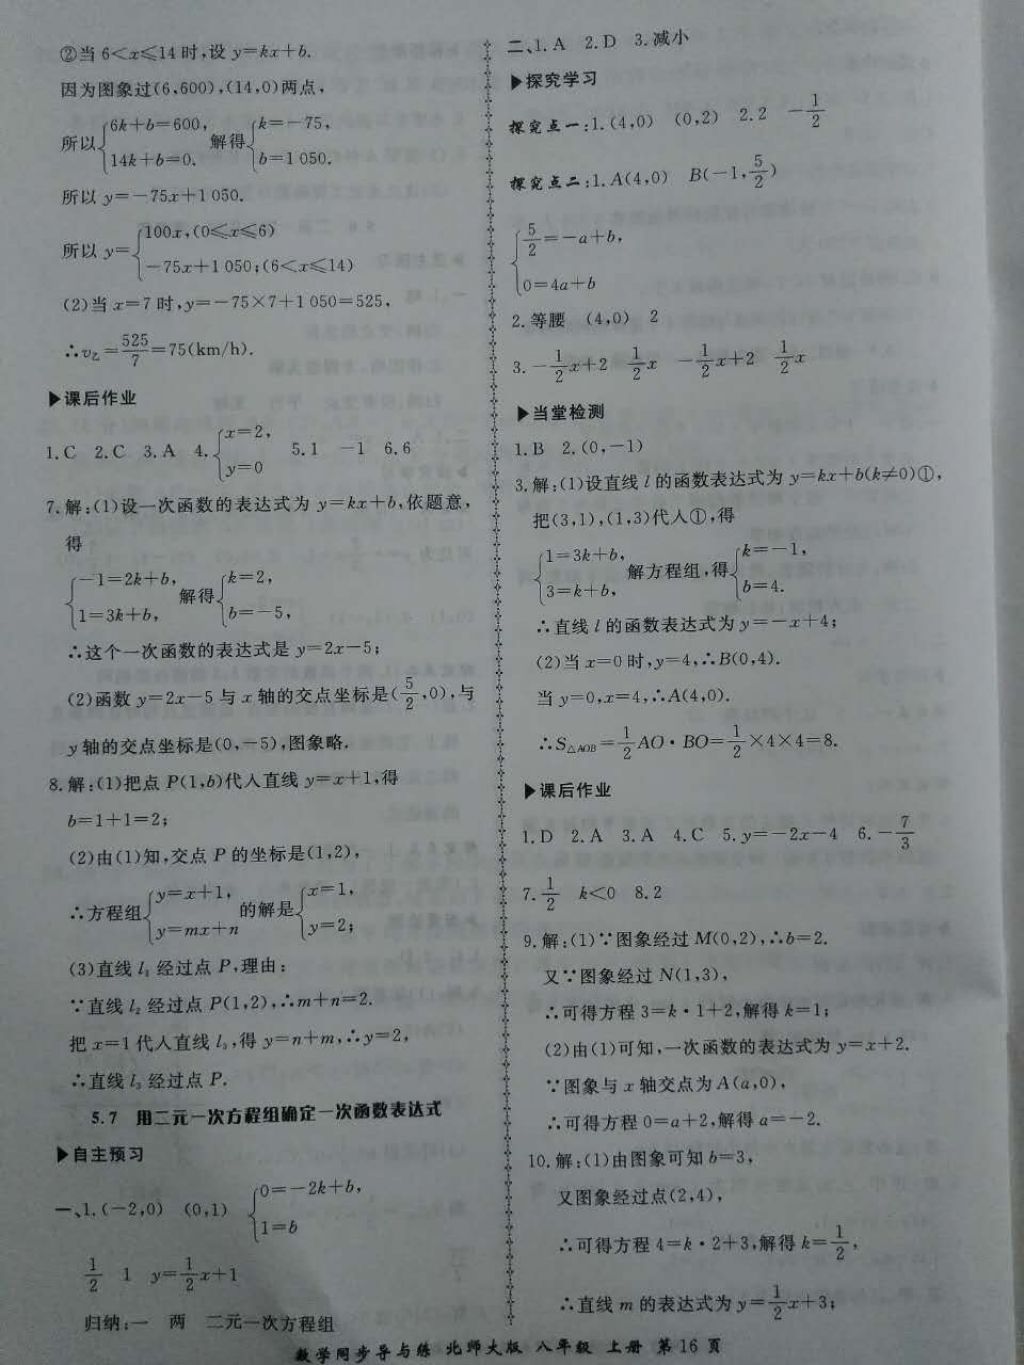 ②当 6<x≤14 时,设 y=kx+b.
因为图象过(6,600),(14,0)两点,
所以{6k+b=600, 14k+b=0. 解得{k=-75, b=1 050.
所以 y=-75x+1 050.
所以 y={100x,(0≤x≤6) -75x+1 050;(6<x≤14)
(2)当 x=7 时,y=-75×7+1 050=525,
∴v乙=525/7=75(km/h).
▶课后作业
1.C 2.C 3.A 4.{x=2, y=0 5.1 -1 6.6
7.解:(1)设一次函数的表达式为 y=kx+b,依题意,
得
{-1=2k+b, 1=3k+b, 解得{k=2, b=-5,
∴这个一次函数的表达式是 y=2x-5;
(2)函数 y=2x-5 与 x 轴的交点坐标是(5/2,0),与
y 轴的交点坐标是(0,-5),图象略.
8.解:(1)把点 P(1,b)代人直线 y=x+1,得
b=1+1=2;
(2)由(1)知,交点 P 的坐标是(1,2),
∴方程组{y=x+1, y=mx+n 的解是{x=1, y=2;
(3)直线 l₃ 经过点 P.理由:
∵直线 l₂ 经过点 P(1,2),∴m+n=2.
把 x=1 代人直线 l₃,得 y=n+m,∴y=2,
∴直线 l₃ 经过点 P.
5.7 用二元一次方程组确定一次函数表达式
▶自主预习
一、1.(-2,0) (0,1) {0=-2k+b, 1=b
1/2 1 y=1/2x+1
归纳:一 两 二元一次方程组
二、1.A 2.D 3.减小
▶探究学习
探究点一:1.(4,0) (0,2) 2.2 -1/2
探究点二:1.A(4,0) B(-1,5/2)
{5/2=-a+b, 0=4a+b
2.等腰 (4,0) 2
3.-1/2x+2 1/2x -1/2x+2 1/2x
▶当堂检测
1.B 2.(0,-1)
3.解:(1)设直线 l 的函数表达式为 y=kx+b(k≠0)①,
把(3,1),(1,3)代人①,得
{1=3k+b, 3=k+b, 解方程组,得{k=-1, b=4.
∴直线 l 的函数表达式为 y=-x+4;
(2)当 x=0 时,y=4,∴B(0,4).
当 y=0,x=4,∴A(4,0).
∴S△AOB=1/2AO·BO=1/2×4×4=8.
▶课后作业
1.D 2.A 3.A 4.C 5.y=-2x-4 6.-7/3
7.1/2 k<0 8.2
9.解:(1)∵图象经过 M(0,2),∴b=2.
又∵图象经过 N(1,3),
∴可得方程 3=k·1+2,解得 k=1;
(2)由(1)可知,一次函数的表达式为 y=x+2.
∵图象与 x 轴交点为 A(a,0),
∴可得方程 0=a+2,解得 a=-2.
10.解:(1)由图象可知 b=3,
又图象经过点(2,4),
∴可得方程 4=k·2+3,解得 k=1/2,
∴直线 m 的表达式为 y=1/2x+3;
数学同步导与练 北师大版 八年级 上册 第16页